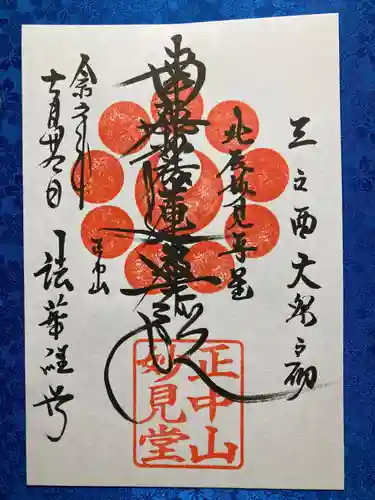 三之酉大祭之砌
北辰妙見尊星
南無妙法蓮華経
正中山
令和二年
十一月廿六日
法華経寺
正中山
妙見堂